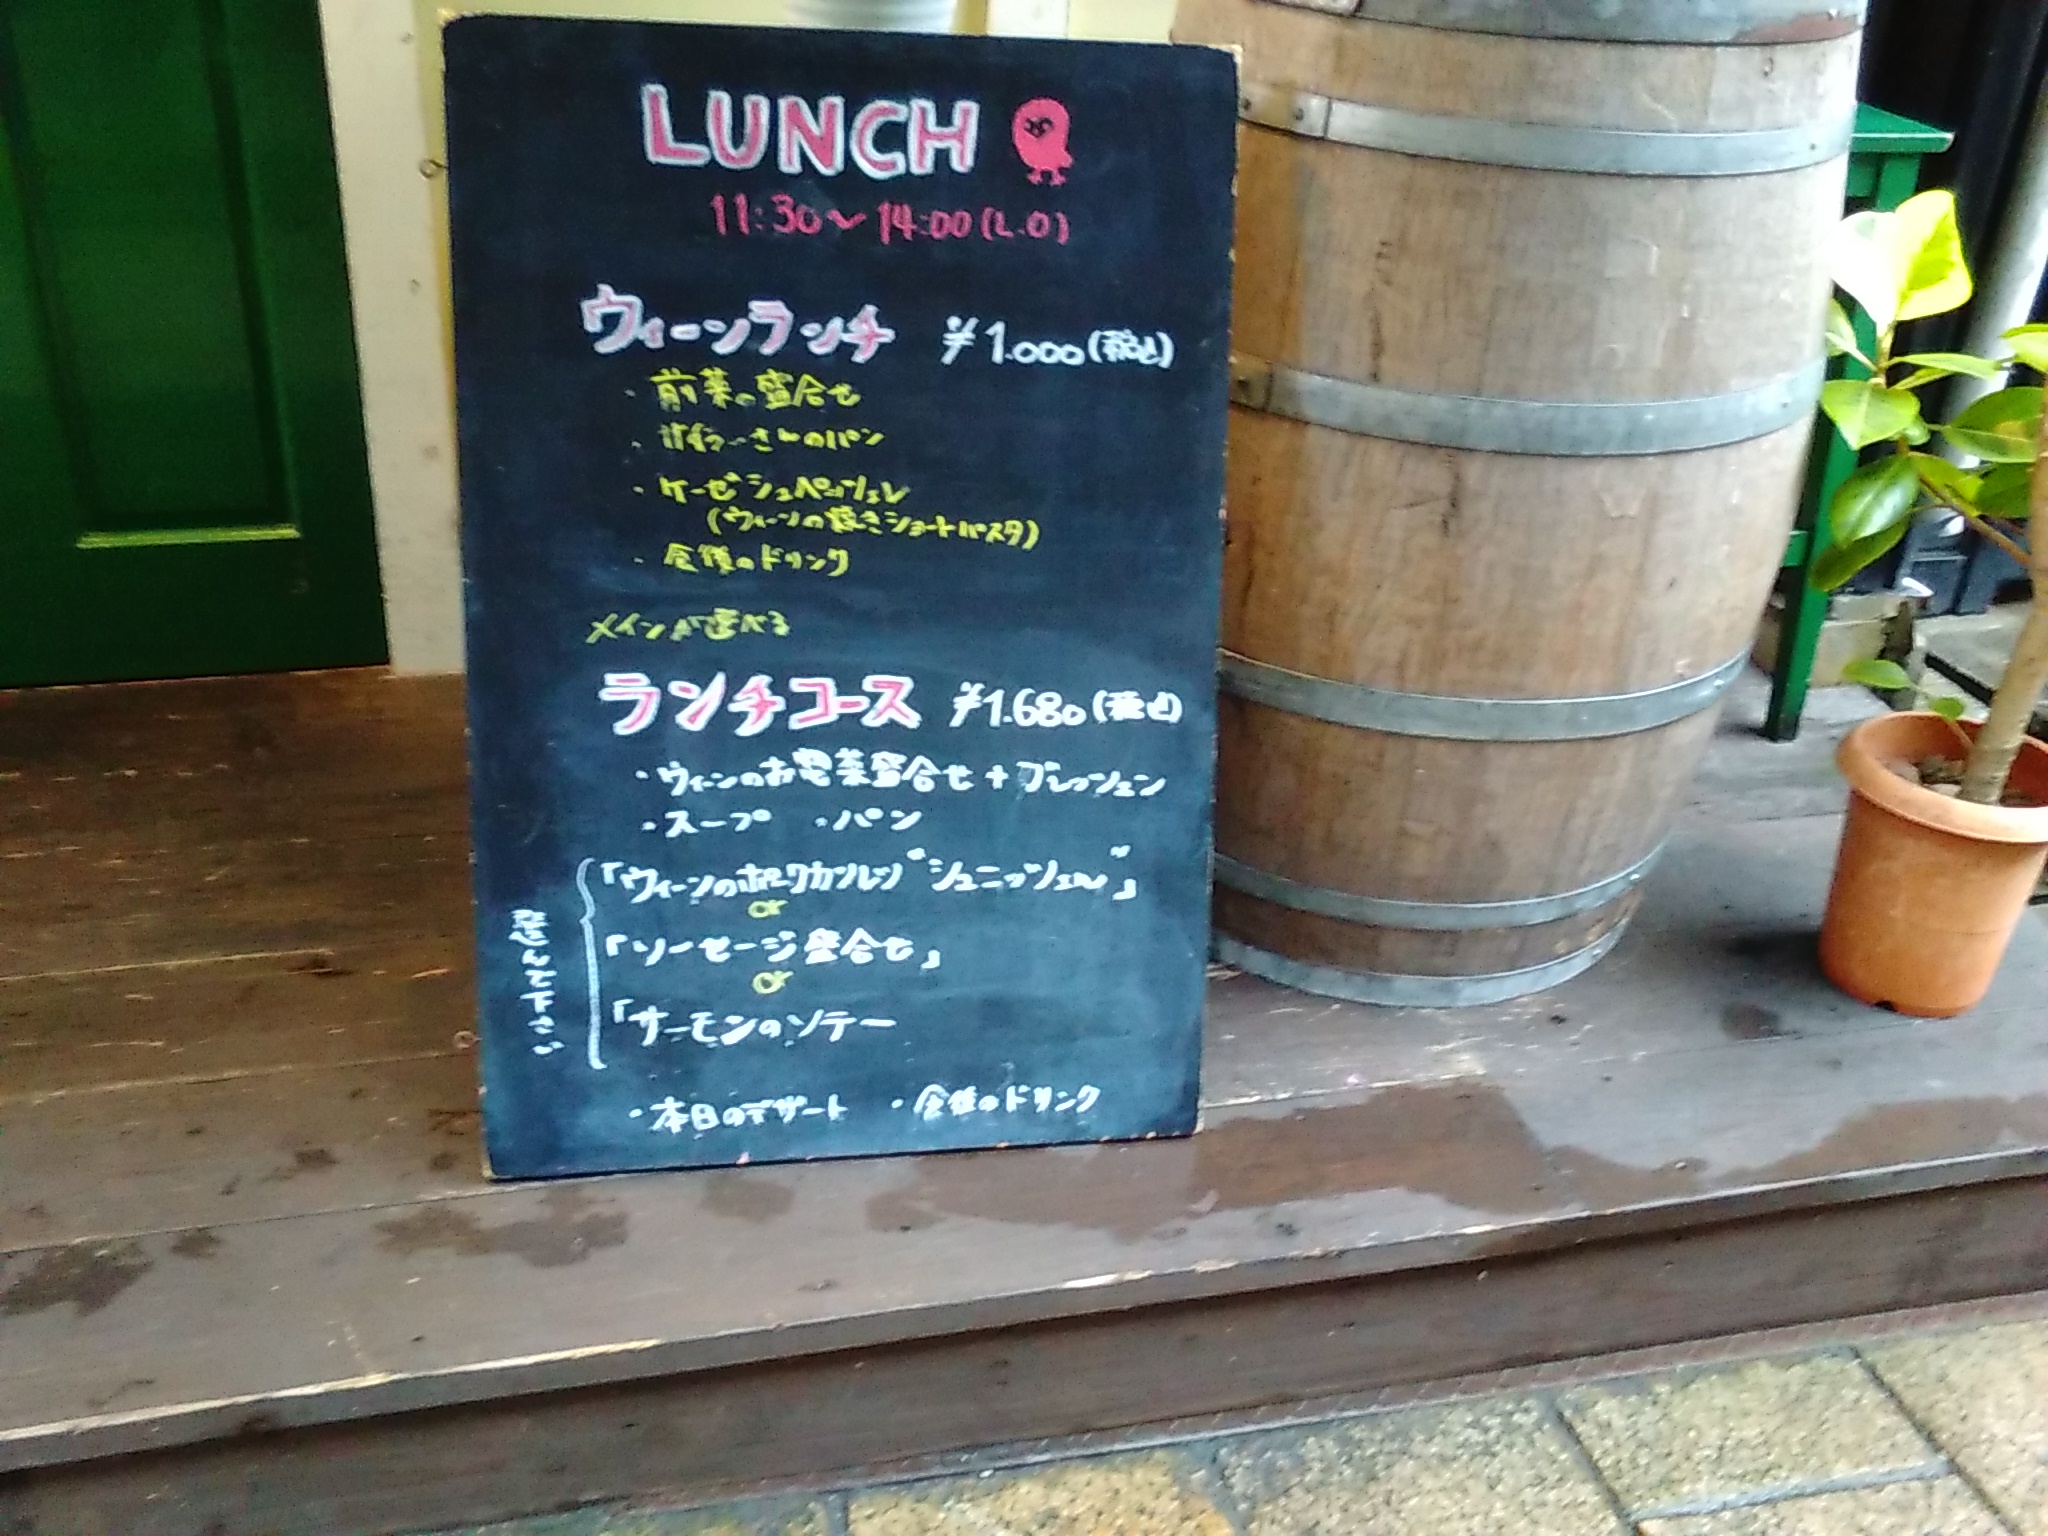 LUNCH
11:30〜14:00(L.O)
ウィーンランチ ¥1.000(税込)
・前菜の盛合せ
・さんのパン
・ケーゼシュペッツェレ
(ウィーンの焼きショートパスタ)
・食後のドリンク
メインが選べる
ランチコース ¥1.680(税込)
・ウィーンのお惣菜盛合せ+ブレッツェン
・スープ ・パン
「ウィーンのポークカツレツ“シュニッツェル”」
or
「ソーセージ盛合せ」
or
「サーモンのソテー
・本日のデザート ・食後のドリンク